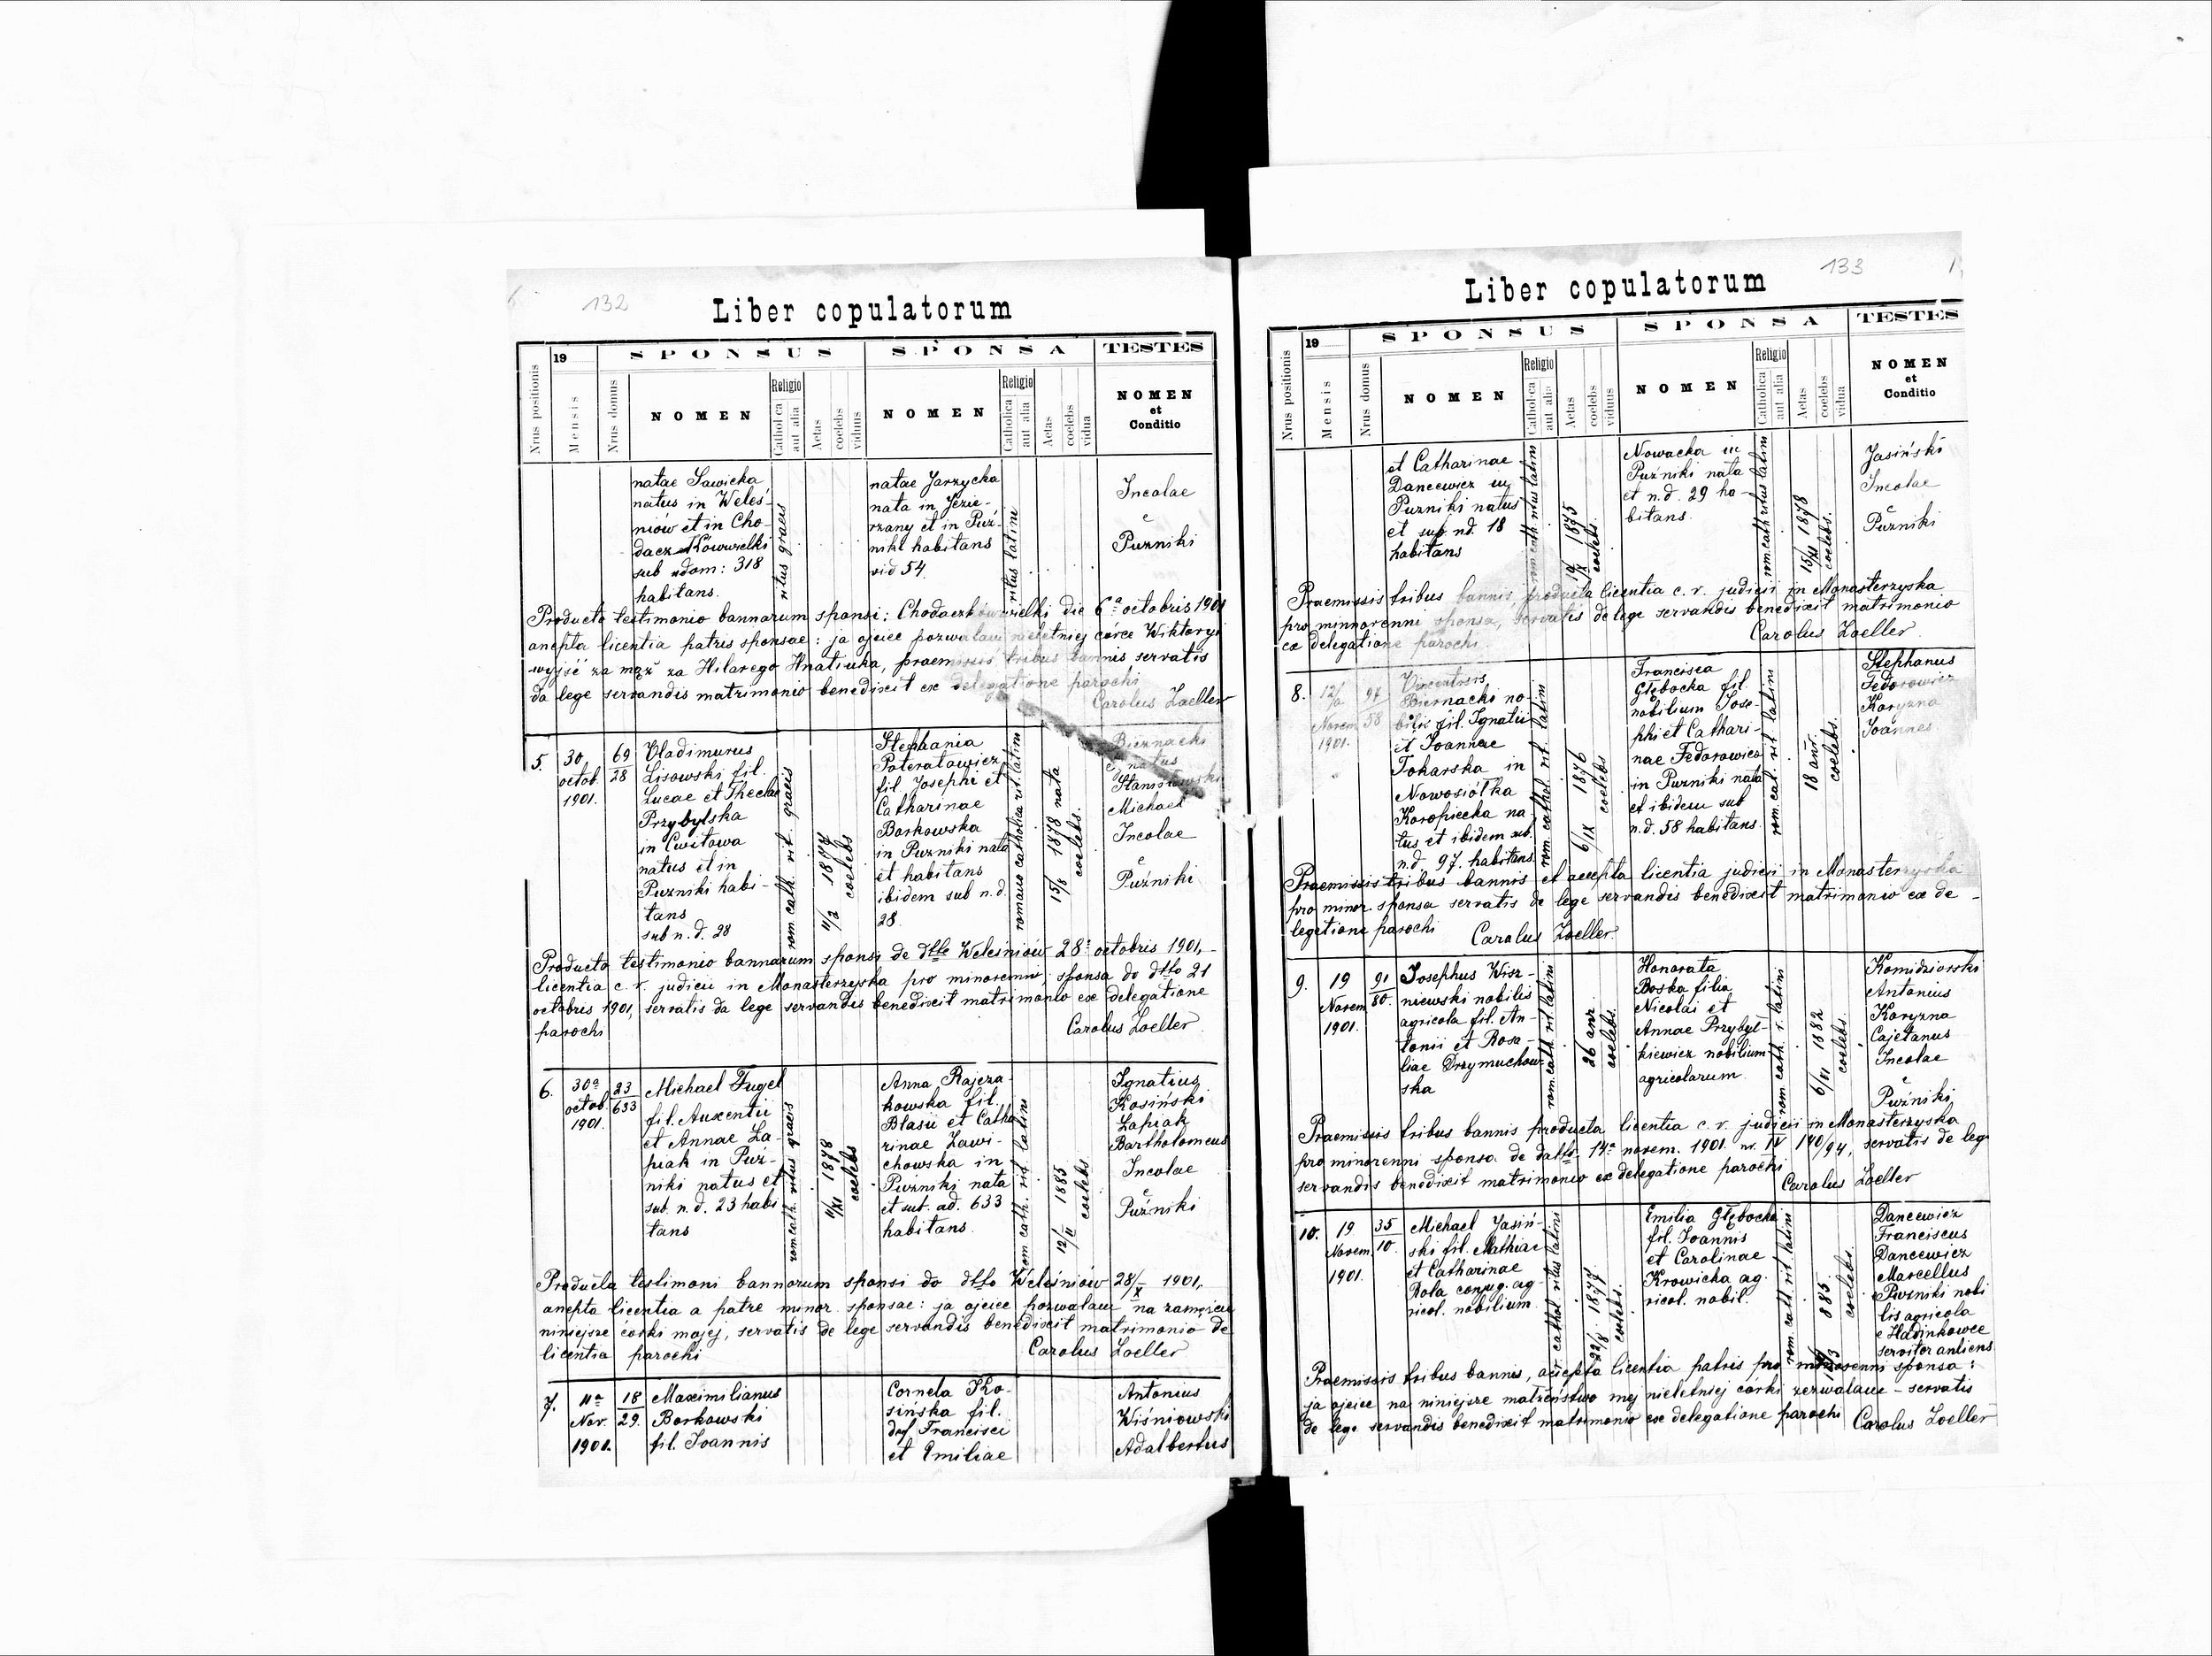 132
Liber copulatorum
19
SPONSUS
SPONSA
TESTES
Nrus positionis
Mensis
Nrus domus
NOMEN
Religio
Catholica
aut alia
Aetas
coelebs
viduus
NOMEN
Religio
Catholica
aut alia
Aetas
coelebs
vidua
NOMEN
et
Conditio
natae Sawicka
natus in Weleś-
niów et in Cho-
daczków wielki
sub dom: 318
habitans.
ritus graeci
natae Jarzycka
nata in Jezie-
rzany et in Puź-
niki habitans
54.
ritus latini
Incolae
e
Puzniki
Producto testimonio bannarum sponsi: Chodaczków wielki die 6a octobris 1901
licentia patris sponsae: ja ojciec pozwalam nieletniej córce Wiktoryi
wyjść za mąż za Hilarego Hnatiuka, praemissis tribus bannis servatis
da lege servandis matrimonio benedixit ex delegatione parochi
Carolus Zoeller
5.
30
octob.
1901.
69
28
Vladimirus
Lisowski fil.
Lucae et Theclae
Przybylska
in Cwitowa
natus et in
Puzniki habi-
tans
sub n. d. 28
rom. cath. rit. graeci
coelebs
Stephania
Poteratowicz
fil. Josephi et
Catharinae
Borkowska
in Puzniki nata
et habitans
ibidem sub n. d.
28.
romano catholica rit. latini
15/8 1878 nata
coelebs.
Biernacki
Michael
Incolae
e
Puźniki
Producto testimonio bannarum sponsi de dtto Weleśniów 28a octobris 1901,
licentia c. r. judicii in Monasterzyska pro minorenni sponsa do dtto 21
octobris 1901, servatis da lege servandis benedixit matrimonio ex delegatione
parochi
Carolus Zoeller
6.
30a
octob.
1901.
23
633
Michael Fugel
fil. Auxentii
et Annae Ła-
piak in Puź-
niki natus et
sub. n. d. 23 habi
tans
rom cath. ritus graeci
1878
coelebs
Anna Rajcza-
kowska fil.
Blasii et Catha
rinae Zawi-
chowska in
Puzniki nata
et sub. ad. 633
habitans.
rom cath. rit. latini
12/II 1883
coelebs
Ignatius
Kosiński
Łapiak
Bartholomeus
Incolae
e
Puźniki
Producta testimoni bannorum sponsi do dtto Weleśniów 28/X 1901,
licentia a patre minor. sponsae: ja ojciec pozwalam na zamęście
niniejsze córki mojej, servatis de lege servandis benedixit matrimonio de
licentia parochi
Carolus Zoeller
7.
11a
Nov.
1901.
18
29.
Maximilianus
Borkowski
fil. Joannis
Cornela Ko-
sińska fil.
def Francisci
et Emiliae
Antonius
Wiśniowski
Adalbertus
133
Liber copulatorum
19
SPONSUS
SPONSA
TESTES
Nrus positionis
Mensis
Nrus domus
NOMEN
Religio
Catholica
aut alia
Aetas
coelebs
viduus
NOMEN
Religio
Catholica
aut alia
Aetas
coelebs
vidua
NOMEN
et
Conditio
et Catharinae
Dancewicz in
Puzniki natus
et sub nd. 18
habitans
rom cath ritus latini
1875
coelebs.
Nowacka in
Puźniki nata
et n. d. 29 ha-
bitans.
rom. cath ritus latini
1878
coelebs.
Jasiński
Incolae
e
Puźniki
Praemissis tribus bannis producta licentia c. r. judicii in Monasterzyska
pro minnorenni sponsa, servatis de lege servandis benedixit matrimonio
ex delegatione parochi.
Carolus Zoeller.
8.
Novem
1901.
97
58
Biernacki no-
bilis fil. Ignatii
et Joannae
Tokarska in
Nowosiółka
Koropiecka na
tus et ibidem sub.
n.d. 97. habitans.
rom. cathol. rit. latini
6/IX 1876
coelebs
Francisca
Głębocka fil.
nobilium Jose-
phi et Cathari-
nae Fedorowicz
in Puzniki nata
et ibidem sub
n. d. 58 habitans.
rom cat. rit. latini
18 anr.
coelebs.
Stephanus
Fedorowicz
Koryzna
Joannes
Praemissis tribus bannis et accepta licentia judicii in Monasterzyska
pro minor. sponsa servatis de lege servandis benedixit matrimonio ex de-
legatione parochi
Carolus Zoeller.
9.
19
Novem
1901.
91
80.
Josephus Wisz-
niewski nobilis
agricola fil. An-
tonii et Rosa-
liae Drzymuchow-
ska
rom cath. rit latini
26 anr
coelebs.
Honorata
Boska filia
Nicolai et
Annae Przybył-
kiewicz nobilium
agricolarum
rom cath. r. latini
6/XI 1882
coelebs.
Komidziorski
Antonius
Koryzna
Cajetanus
Incolae
e
Puźniki
Praemissis tribus bannis producta licentia c. r. judicii in Monasterzyska
pro minorenni sponsa de datto 14a novem. 1901. nr. IV 140/94, servatis de lege
servandis benedixit matrimonio ex delegatione parochi
Carolus Zoeller
10.
19
Novem
1901.
35
10.
Michael Jasiń-
ski fil. Mathiae
et Catharinae
Rola conjug. ag-
ricol. nobilium.
cathol. ritus latini
1877
coelebs.
Emilia Głębocka
fil. Joannis
et Carolinae
Krowicka ag.
ricol. nobil.
rom cath rit latini
885.
coelebs.
Dancewicz
Franciscus
Dancewicz
Marcellus
e Puzniki nobi
lis agricola
e Hadinkowce
servitor
Praemissis tribus bannis, accepta licentia patris pro minorenni sponsa:
ja ojciec na niniejsze małżeństwo mej nieletniej córki zezwalam - servatis
de lege servandis benedixit matrimonio ex delegatione parochi
Carolus Zoeller